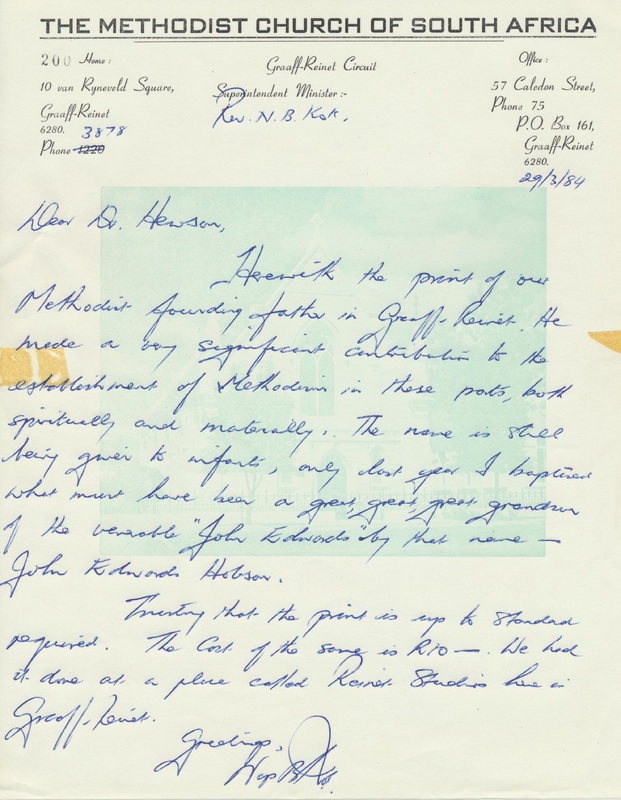 THE METHODIST CHURCH OF SOUTH AFRICA
200 Home:
10 van Ryneveld Square,
Graaff-Reinet
6280. 3878
Phone 1220
Graaff-Reinet Circuit
Superintendent Minister :-
Rev. N. B. Kok.
Office:
57 Caledon Street,
Phone 75
P.O. Box 161,
Graaff-Reinet
6280.
29/3/84
Dear Dr. Hewson,
Herewith the print of our
Methodist founding father in Graaff-Reinet. He
made a very significant contribution to the
establishment of Methodism in these parts, both
spiritually and materially. The name is still
being given to infants, only last year I baptised
what must have been a great, great, great grandson
of the venerable "John Edwards" by that name —
John Edwards Hobson.
Trusting that the print is up to standard
required. The cost of the same is R10 —. We had
it done at a place called Reinet Studios here in
Graaff-Reinet.
Greetings,